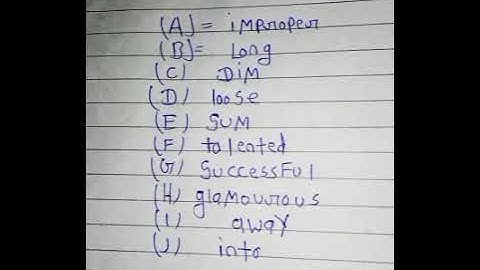 (A) = improper
(B) = Long
(C) Dim
(D) loose
(E) SUM
(F) talented
(G) Successful
(H) glamourous
(I) away
(J) into